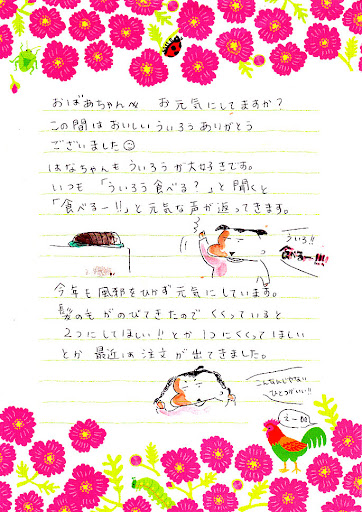 おばあちゃんへ お元気にしてますか？
この間はおいしいういろうありがとう
ございました
はなちゃんもういろうが大好きです。
いつも「ういろう食べる？」と聞くと
「食べるー!!」と元気な声が返ってきます。
ういろ!!
食べるー!!!
今年も風邪をひかず元気にしています。
髪の毛がのびてきたのでくくっていると
2つにしてほしい!!とか1つにくくってほしい
とか最近は注文が出てきました。
こんなんじゃない
ひとつがいい!!